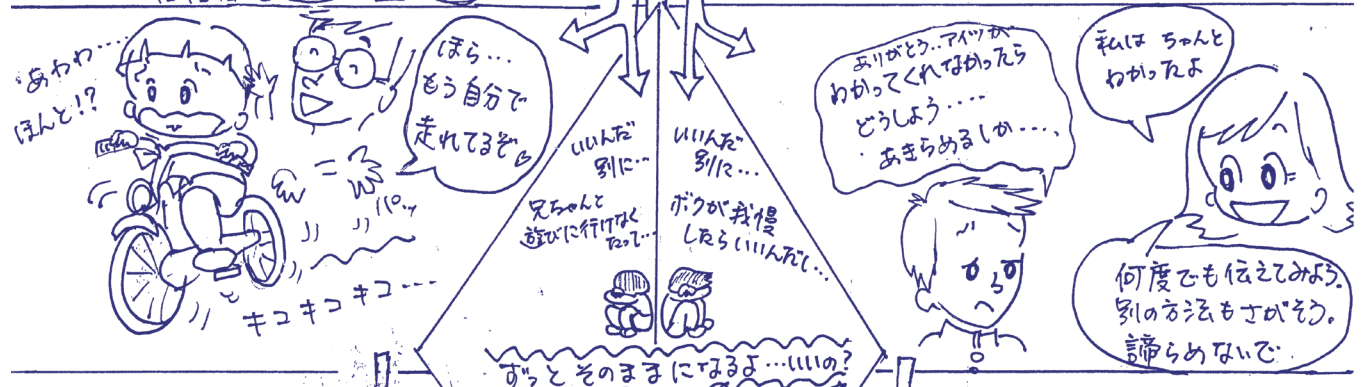 あわわ‥‥
ほんと!?
ほら…
もう自分で
走れてるぞ
パッ
キコキコキコ…
いいんだ
別に…
兄ちゃんと
遊びに行けなく
たって…
いいんだ
別に…
ボクが我慢
したらいいんだし…
ずっとそのままになるよ…いいの?
ありがとう‥アイツが
わかってくれなかったら
どうしよう‥‥
あきらめるしか‥‥
私は ちゃんと
わかったよ
何度でも伝えてみよう。
別の方法もさがそう。
諦らめないで